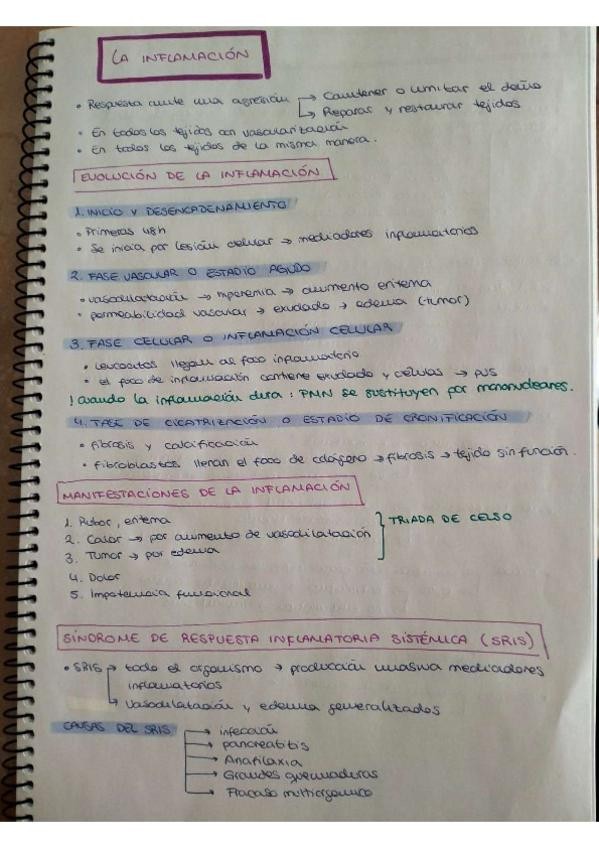 LA INFLAMACIÓN
• Respuesta ante una agresión → Contener o limitar el daño
→ Reparar y restaurar tejidos
• En todos los tejidos con vascularización
• En todos los tejidos de la misma manera.
EVOLUCIÓN DE LA INFLAMACIÓN
1. INICIO Y DESENCADENAMIENTO
• Primeras 48h
• Se inicia por lesión celular → mediadores inflamatorios
2. FASE VASCULAR O ESTADIO AGUDO
• vasodilatación → hiperemia → aumento eritema
• permeabilidad vascular → exudado → edema (tumor)
3. FASE CELULAR O INFLAMACIÓN CELULAR
• leucocitos llegan al foco inflamatorio
• el foco de inflamación contiene exudado y células → pus
! Cuando la inflamación dura: PMN se sustituyen por mononucleares.
4. FASE DE CICATRIZACIÓN O ESTADIO DE CRONIFICACIÓN
• fibrosis y calcificación
• fibroblastos llenan el foco de colágeno → fibrosis → tejido sin función.
MANIFESTACIONES DE LA INFLAMACIÓN
1. Rubor, eritema
2. Calor → por aumento de vasodilatación
3. Tumor → por edema
TRIADA DE CELSO
4. Dolor
5. Impotencia funcional
SÍNDROME DE RESPUESTA INFLAMATORIA SISTÉMICA (SRIS)
• SRIS → todo el organismo → producción masiva mediadores
inflamatorios
→ Vasodilatación y edema generalizados
CAUSAS DEL SRIS → infección
→ pancreatitis
→ Anafilaxia
→ Grandes quemaduras
→ Fracaso multiorgánico